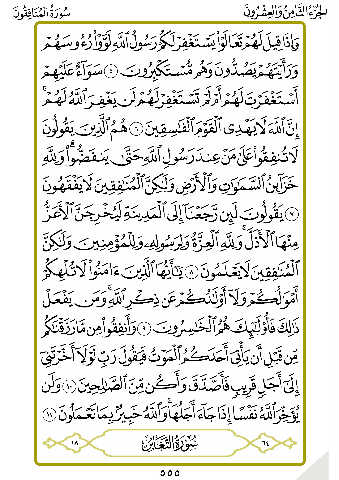 سُورَةُ المُنَافِقُونَ الجُزْءُ الثَّامِنُ وَالعِشْرُونَ
وَإِذَا قِيلَ لَهُمْ تَعَالَوْا۟ يَسْتَغْفِرْ لَكُمْ رَسُولُ ٱللَّهِ لَوَّوْا۟ رُءُوسَهُمْ
وَرَأَيْتَهُمْ يَصُدُّونَ وَهُم مُّسْتَكْبِرُونَ ۝٥ سَوَآءٌ عَلَيْهِمْ
أَسْتَغْفَرْتَ لَهُمْ أَمْ لَمْ تَسْتَغْفِرْ لَهُمْ لَن يَغْفِرَ ٱللَّهُ لَهُمْ ۚ
إِنَّ ٱللَّهَ لَا يَهْدِى ٱلْقَوْمَ ٱلْفَـٰسِقِينَ ۝٦ هُمُ ٱلَّذِينَ يَقُولُونَ
لَا تُنفِقُوا۟ عَلَىٰ مَنْ عِندَ رَسُولِ ٱللَّهِ حَتَّىٰ يَنفَضُّوا۟ ۗ وَلِلَّهِ
خَزَآئِنُ ٱلسَّمَـٰوَٰتِ وَٱلْأَرْضِ وَلَـٰكِنَّ ٱلْمُنَـٰفِقِينَ لَا يَفْقَهُونَ
۝٧ يَقُولُونَ لَئِن رَّجَعْنَآ إِلَى ٱلْمَدِينَةِ لَيُخْرِجَنَّ ٱلْأَعَزُّ
مِنْهَا ٱلْأَذَلَّ ۚ وَلِلَّهِ ٱلْعِزَّةُ وَلِرَسُولِهِۦ وَلِلْمُؤْمِنِينَ وَلَـٰكِنَّ
ٱلْمُنَـٰفِقِينَ لَا يَعْلَمُونَ ۝٨ يَـٰٓأَيُّهَا ٱلَّذِينَ ءَامَنُوا۟ لَا تُلْهِكُمْ
أَمْوَٰلُكُمْ وَلَآ أَوْلَـٰدُكُمْ عَن ذِكْرِ ٱللَّهِ ۚ وَمَن يَفْعَلْ
ذَٰلِكَ فَأُو۟لَـٰٓئِكَ هُمُ ٱلْخَـٰسِرُونَ ۝٩ وَأَنفِقُوا۟ مِن مَّا رَزَقْنَـٰكُم
مِّن قَبْلِ أَن يَأْتِىَ أَحَدَكُمُ ٱلْمَوْتُ فَيَقُولَ رَبِّ لَوْلَآ أَخَّرْتَنِىٓ
إِلَىٰٓ أَجَلٍ قَرِيبٍ فَأَصَّدَّقَ وَأَكُن مِّنَ ٱلصَّـٰلِحِينَ ۝١٠ وَلَن
يُؤَخِّرَ ٱللَّهُ نَفْسًا إِذَا جَآءَ أَجَلُهَا ۚ وَٱللَّهُ خَبِيرٌۢ بِمَا تَعْمَلُونَ ۝١١
٦٤ سُورَةُ التَّغَابُنِ ١٨
٥٥٥